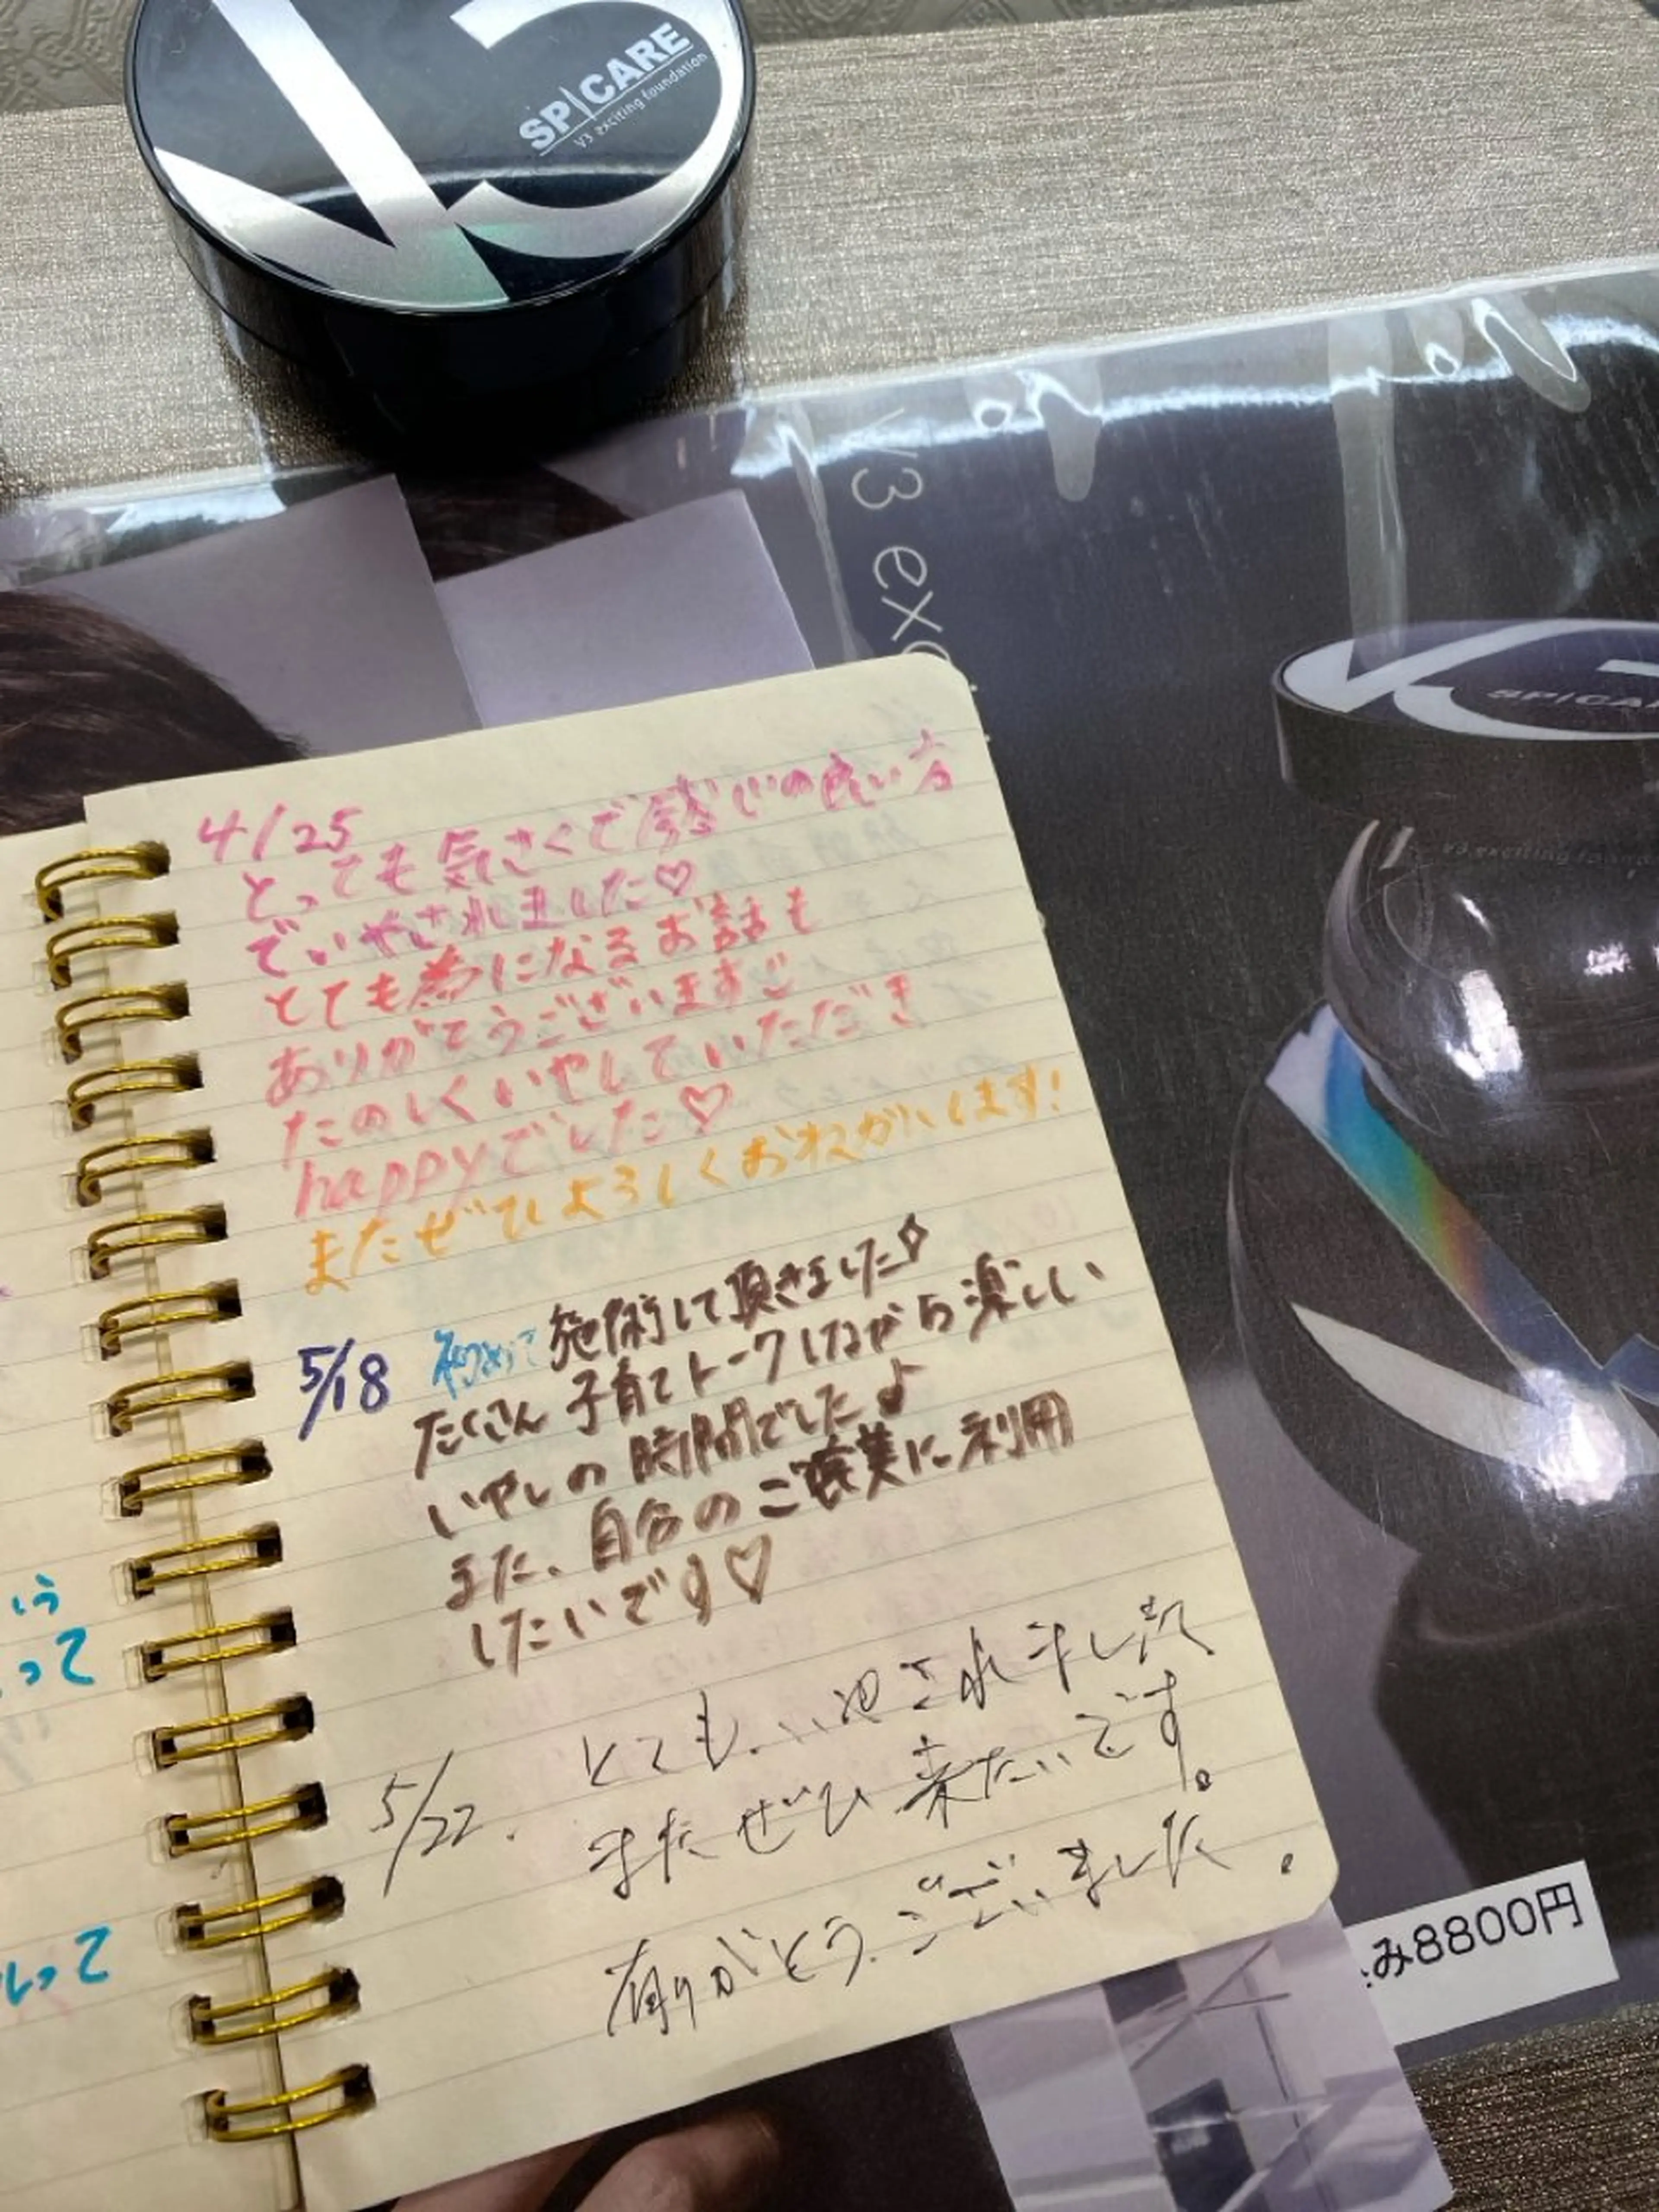 SPICARE
V3 exciting foundation
V3 exc
SPICA
V3 exciting founda
4/25
とっても気さくで感じの良い方
でいやされました♡
とても為になるお話も
ありがとうございますご
たのしくいやしていただき
happyでした♡
またぜひよろしくおねがいします!
5/18 初めて施術して頂きました
たくさん子育てトークしながら楽しい
いやしの時間でした♪
また、自分のご褒美に利用
したいです♡
5/22. とても、いやされました
またぜひ来たいです。
有りがとうございました。
いう
って
って
み8800円